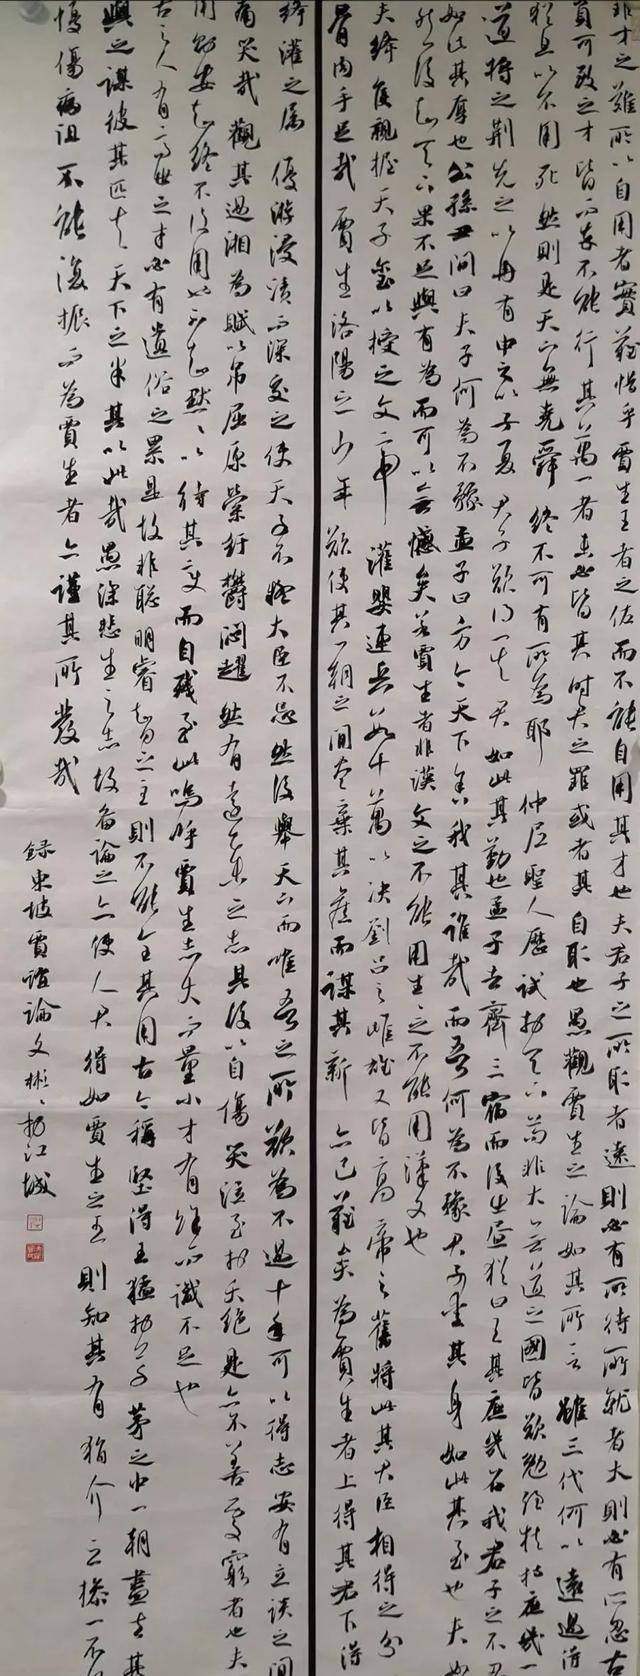 非才之難所以自用者實難惜乎賈生王者之佐而不能自用其才也夫君子之所取者遠則必有所待所就者大則必有所忍古
負可致之才皆而卒不能行其萬一者未必皆其時君之罪或者其自取也愚觀賈生之論如其所言雖三代何以遠過得
猶且以不用死然則是天下無堯舜終不可有所為耶仲尼聖人歷試於天下苟非大無道之國皆欲勉強扶持庶幾一
道將之荊先之以冉有申之以子夏君子欲得其君如此其勤也孟子去齊三宿而後出晝猶曰王其庶幾召我君子之不忍
如此其厚也公孫丑問曰夫子何為不豫孟子曰方今天下舍我其誰哉而吾何為不豫君子愛其身如此其至也夫如
然後知天下果不足與有為而可以無憾矣若賈生者非漢文之不能用生生之不能用漢文也
夫絳侯親握天子璽以授之文帝灌嬰連兵數十萬以決劉呂之雌雄又皆高帝之舊將此其君臣相得之分
骨肉手足哉賈生洛陽之少年欲使其一朝之間盡棄其舊而謀其新亦已難矣為賈生者上得其君下得
絳灌之屬優游浸漬而深交之使天子不疑大臣不忌然後舉天下而唯吾之所欲為不過十年可以得志安有立談之間
痛哭哉觀其過湘為賦以吊屈原縈紆鬱悶趯然有遠舉之志其後以自傷哭泣至於夭絕是亦不善處窮者也夫
用則安知終不復用也不知默默以待其變而自殘至此嗚呼賈生志大而量小才有餘而識不足也
古之人有高世之才必有遺俗之累是故非聰明睿智之主則不能全其用古今稱堅得王猛於草茅之中一朝盡去其
與之謀彼其匹夫天下之半其以此哉愚深悲生之志故備論之亦使人君得如賈生之臣則知其有狷介之操一不
憂傷病沮不能復振而為賈生者亦謹其所發哉
錄東坡賈誼論文彬彬於江城